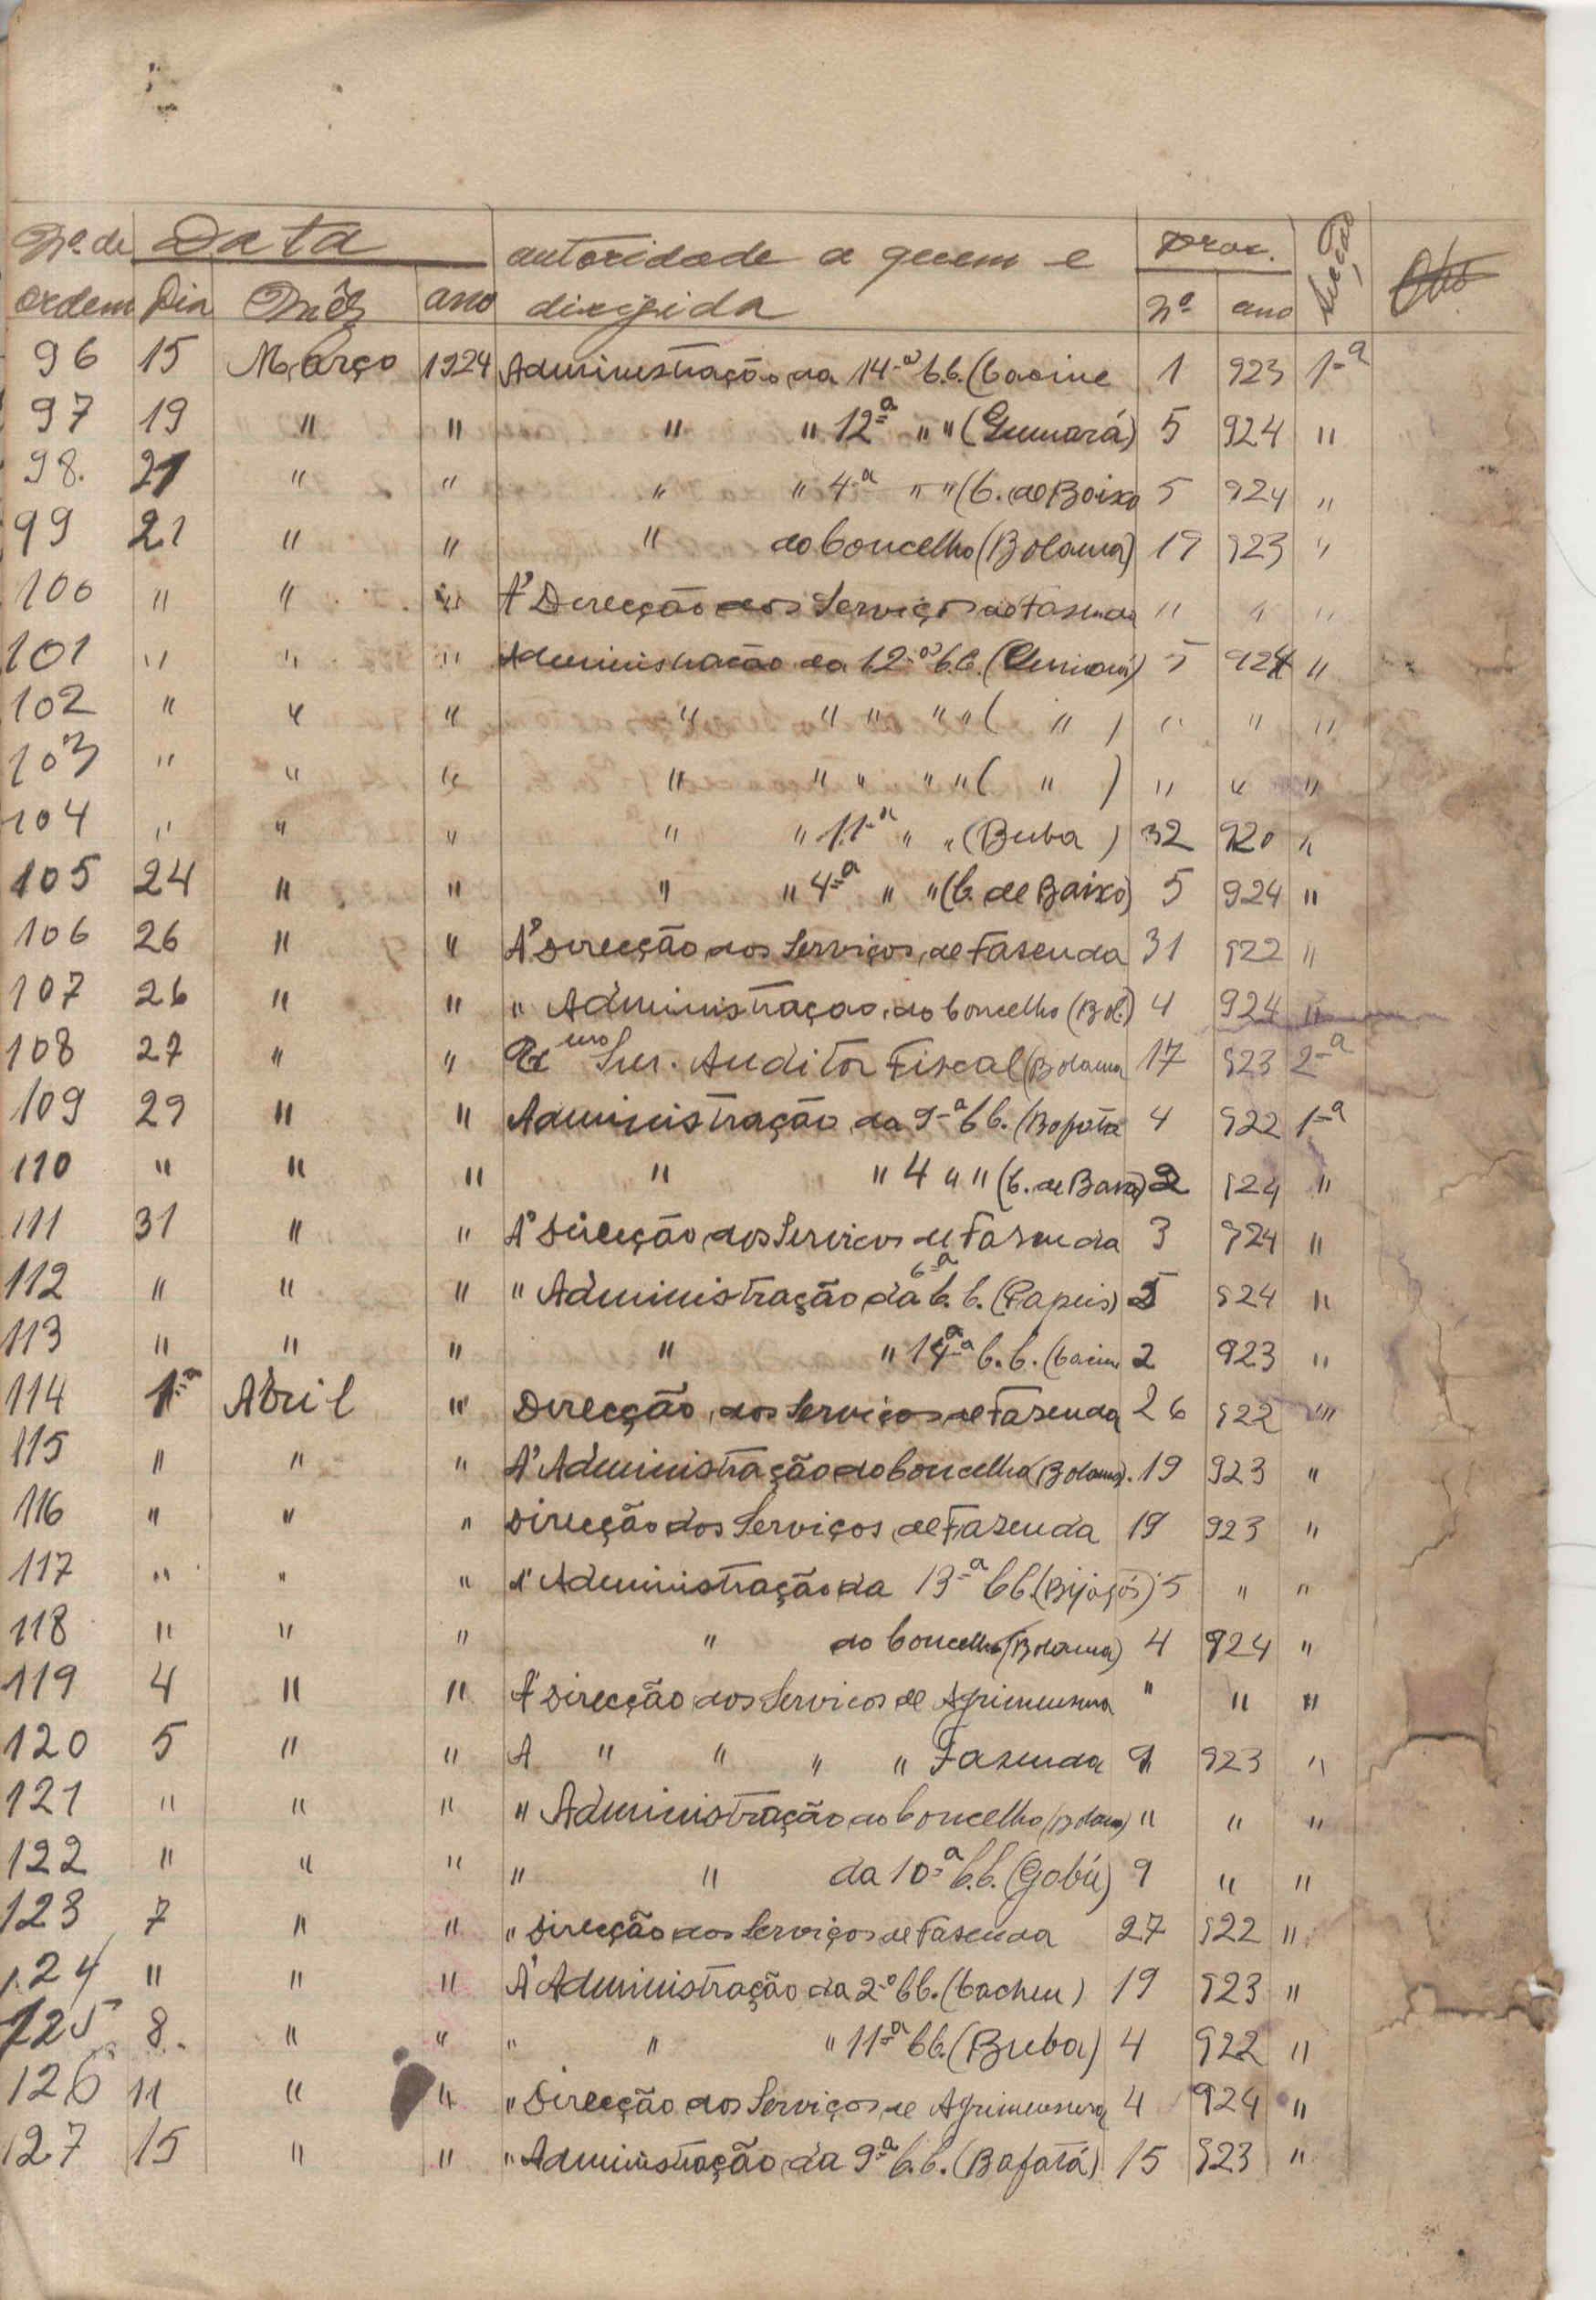 Nº de Data autoridade a quem e Proc. Secção Obs
ordem Dia Mêz ano dirigida Nº ano
96 15 Março 1924 Administração da 14ª C.C. (Cacine 1 923 1ª
97 19 " " " " 12ª " " (Gumará) 5 924 "
98. 21 " " " " 4ª " " (C. de Baixo 5 924 "
99 21 " " " do Concelho (Bolama) 19 923 "
100 " " " Á Direcção dos Serviços de Fasenda " " "
101 " " " Administração da 12ª C.C. ( ) 5 924 "
102 " " " " " " " " ( " ) " " "
103 " " " " " " " " ( " ) " " "
104 " " " " " 11ª " " (Buba ) 32 920 "
105 24 " " " " 4ª " " (C. de Baixo) 5 924 "
106 26 " " Á Direcção dos Serviços de Fasenda 31 922 "
107 26 " " " Administração do Concelho (Bol.) 4 924 "
108 27 " " Snr. Auditor Fiscal (Bolama 17 923 2ª
109 29 " " Administração da 9ª C C. (Bafatá 4 922 1ª
110 " " " " " 4 " " (C. de ) 2 924 "
111 31 " " Á Direcção dos Servicos de Fasenda 3 924 "
112 " " " " Administração da 6ª C. C. (Papeis) 5 924 "
113 " " " " " 14ª C. C. (Cacine 2 923 "
114 1º Abril " Direcção dos Serviços de Fazenda 26 922 "
115 " " " Á Administração do Concelho (Bolama). 19 923 "
116 " " " Direcção dos Serviços de Fazenda 19 923 "
117 " " " Á Administração da 13ª C C. (Bijagós) 5 " "
118 " " " " do Concelho (Bolama) 4 924 "
119 4 " " Á Direcção dos Servicos de Agrimensura " " "
120 5 " " A " " " " Fazenda 9 923 "
121 " " " " Administração do Concelho (Bolama) " " "
122 " " " " " da 10ª C.C. (Gabú) 9 " "
123 7 " " " Direcção dos Serviços de Fasenda 27 922 "
124 " " " Á Administração da 2ª C C. (Cacheu) 19 923 "
125 8. " " " " " 11ª C C. (Buba) 4 922 "
126 11 " " " Direcção dos Serviços de Agrimensura 4 924 "
127 15 " " " Administração da 9ª C. C. (Bafatá) 15 923 "